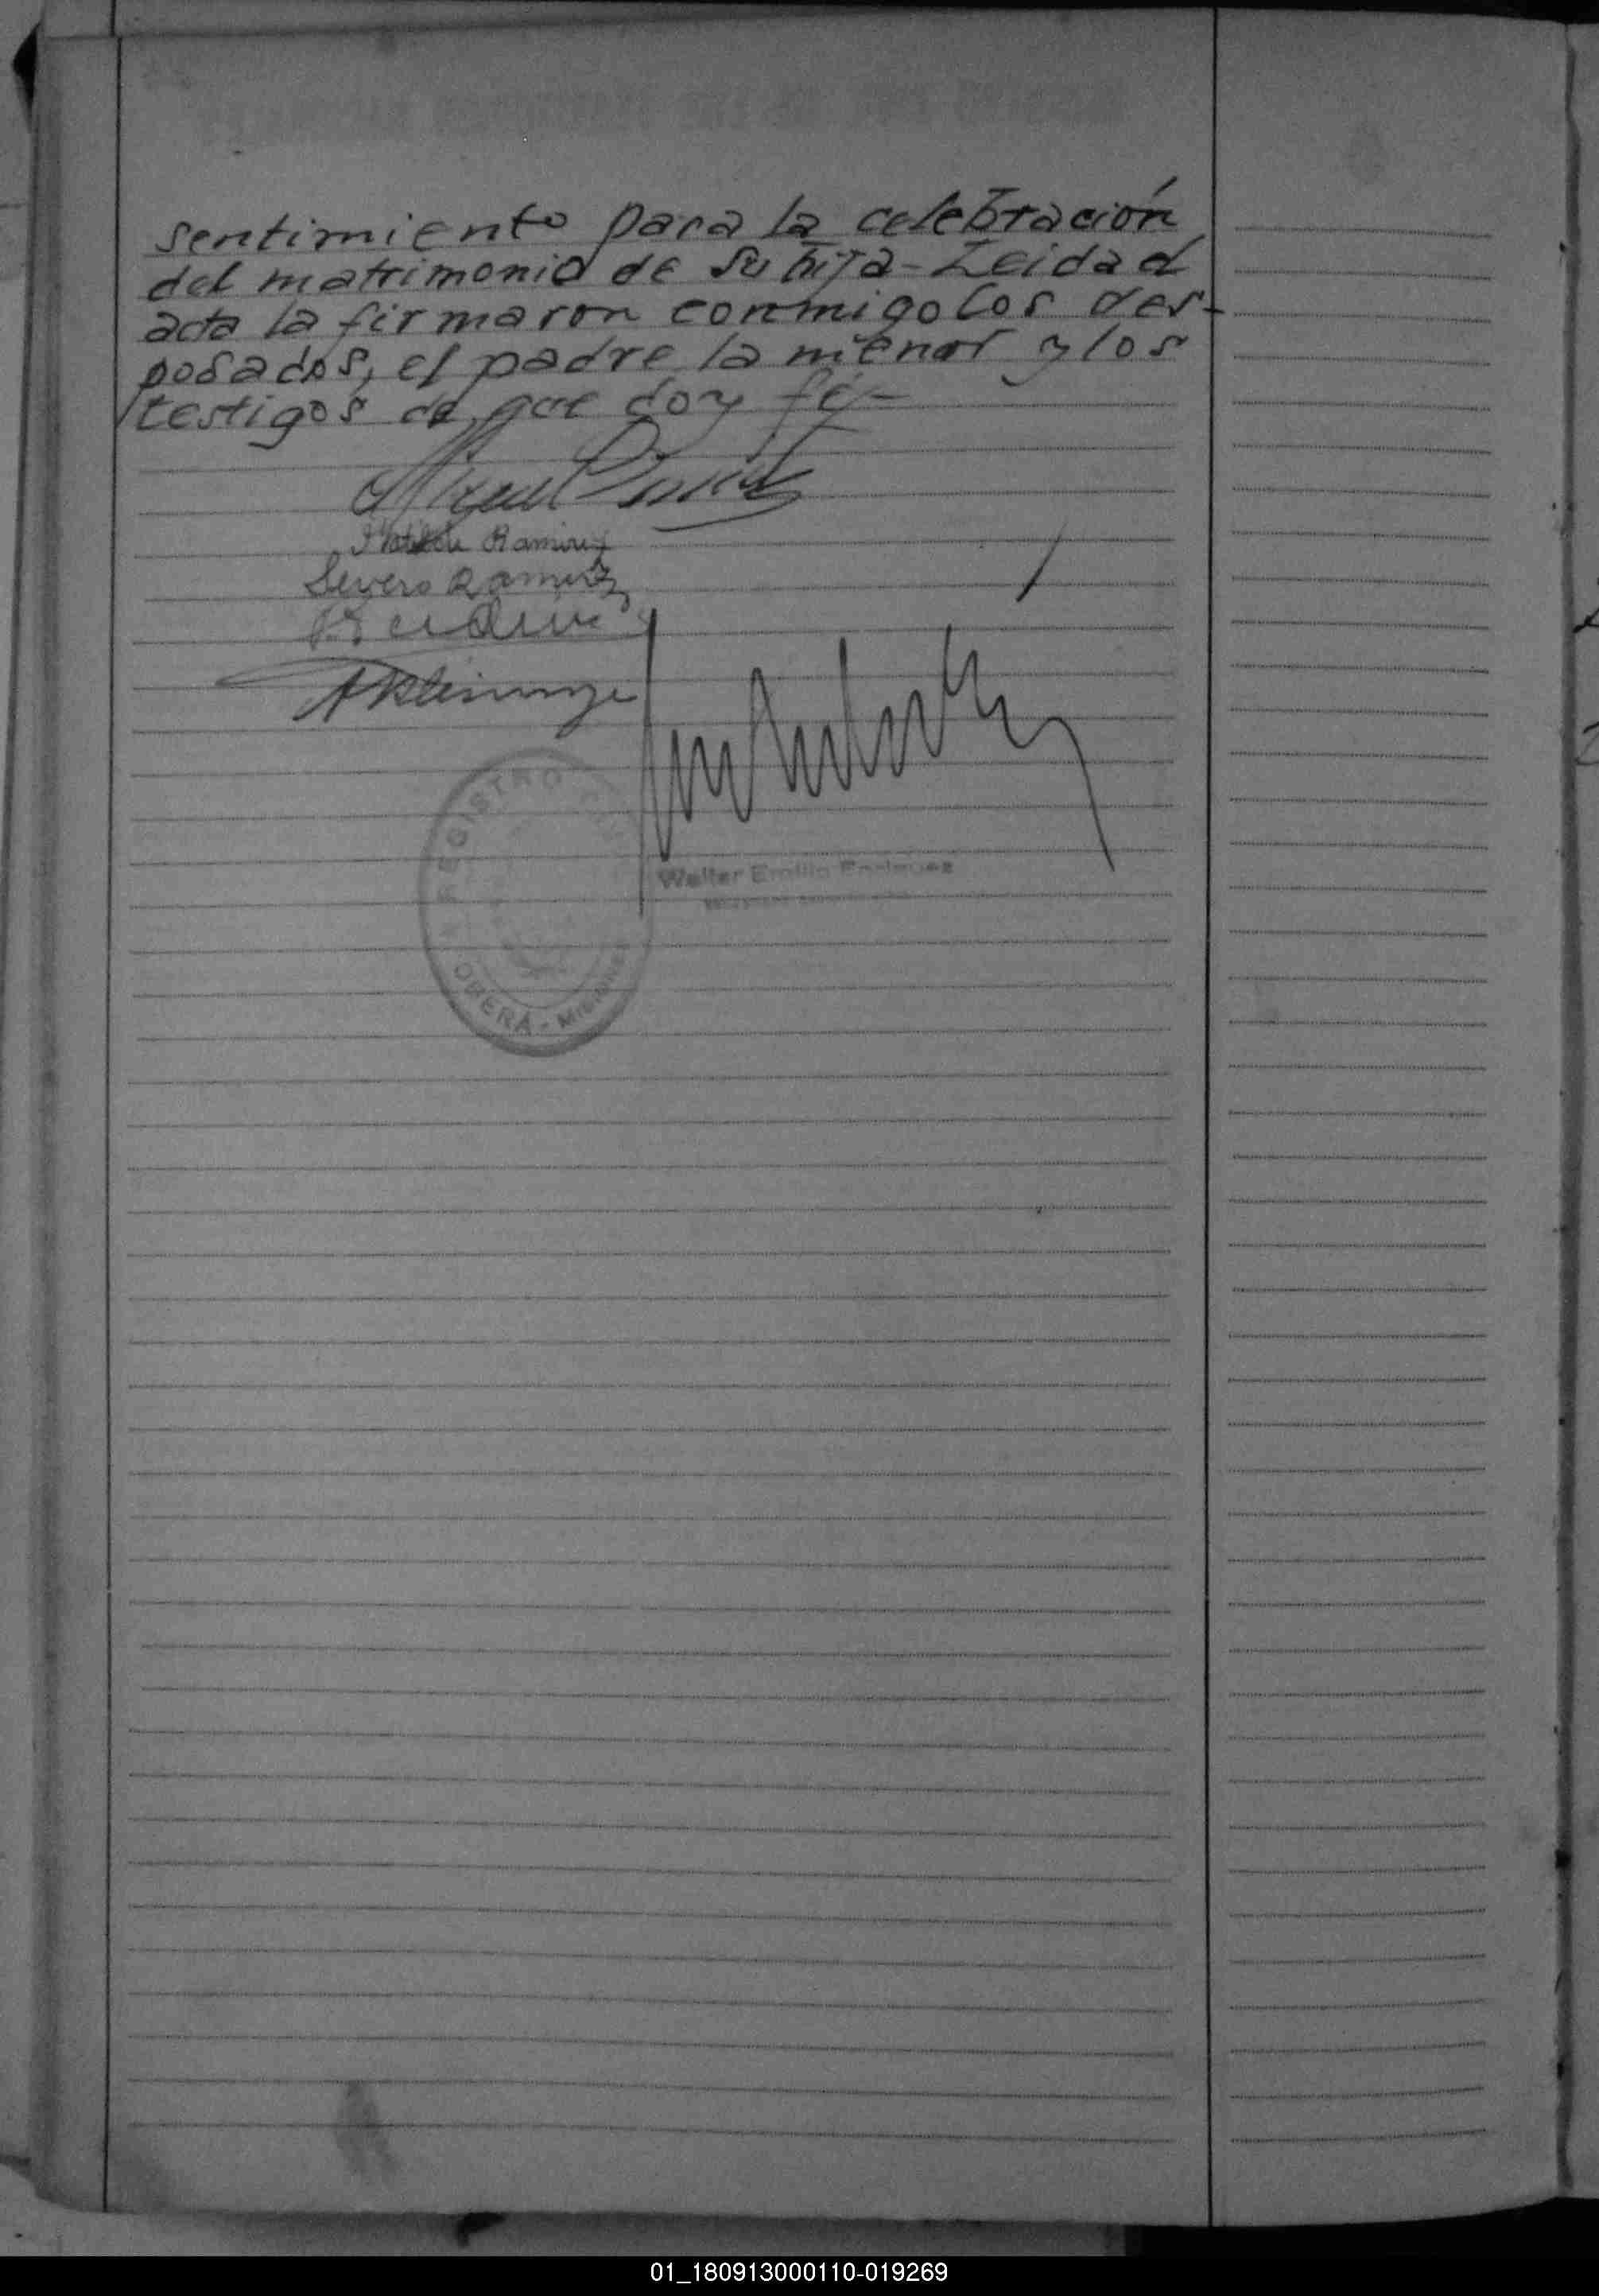 sentimiento para la celebración
del matrimonio de su hija - Leida el
acta la firmaron conmigo los des-
posados, el padre la menor y los
testigos de que doy fé -
Ramirez
Severo Ramirez
REGISTRO
Walter Emilio Enriquez
OBERÁ - MISIONES
01_180913000110-019269